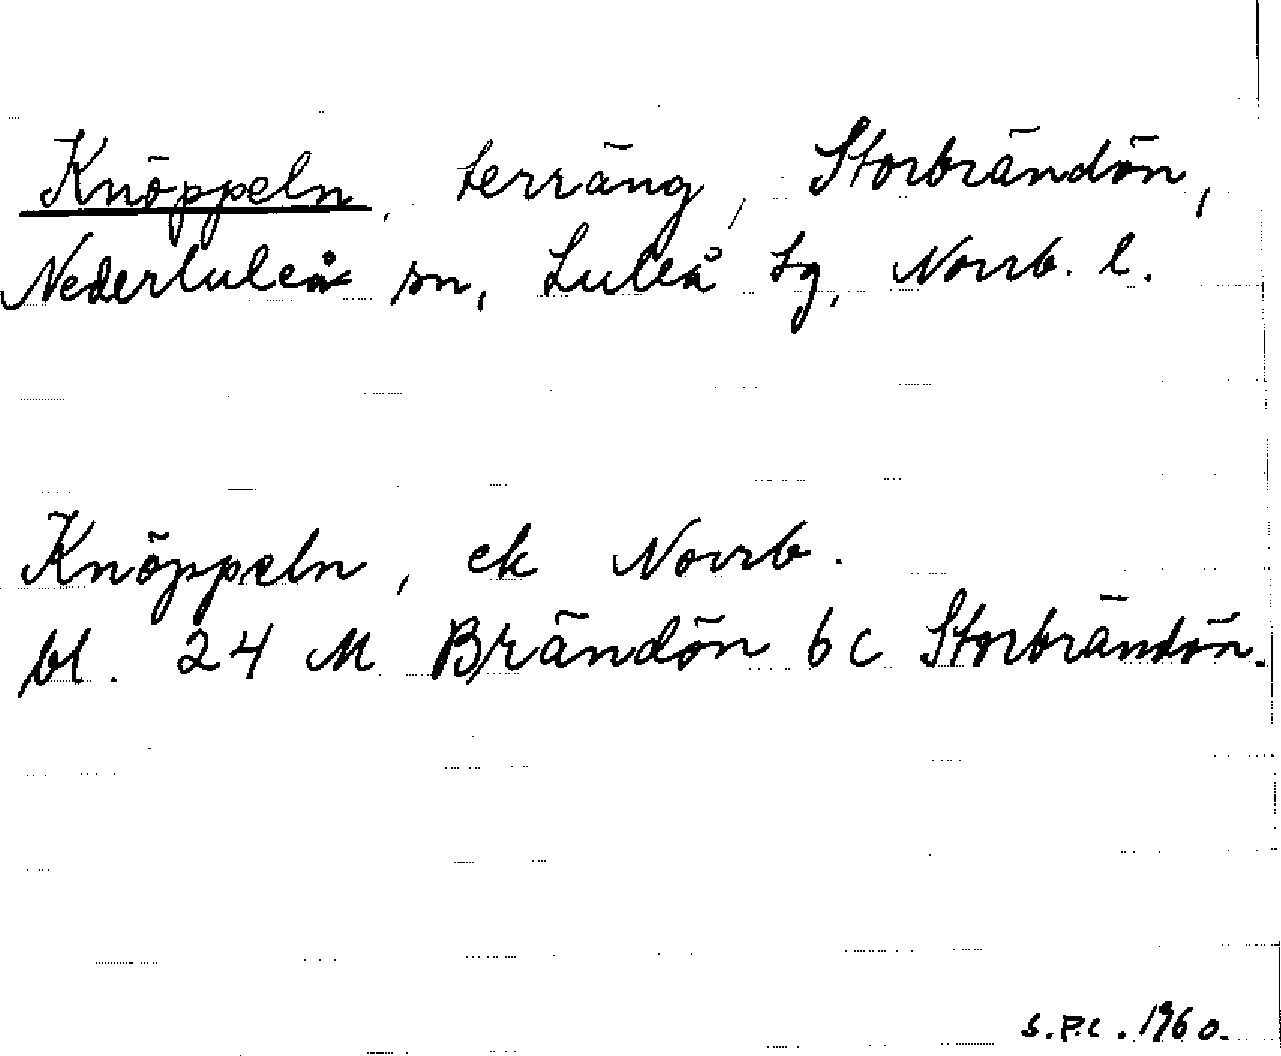 Knöppeln, terräng, Storbrändön,
Nederluleå sn, Luleå tg, Norrb. l.
Knöppeln, ek Norrb.
bl. 24 M Brändön 6 c Storbrändön.
1960.